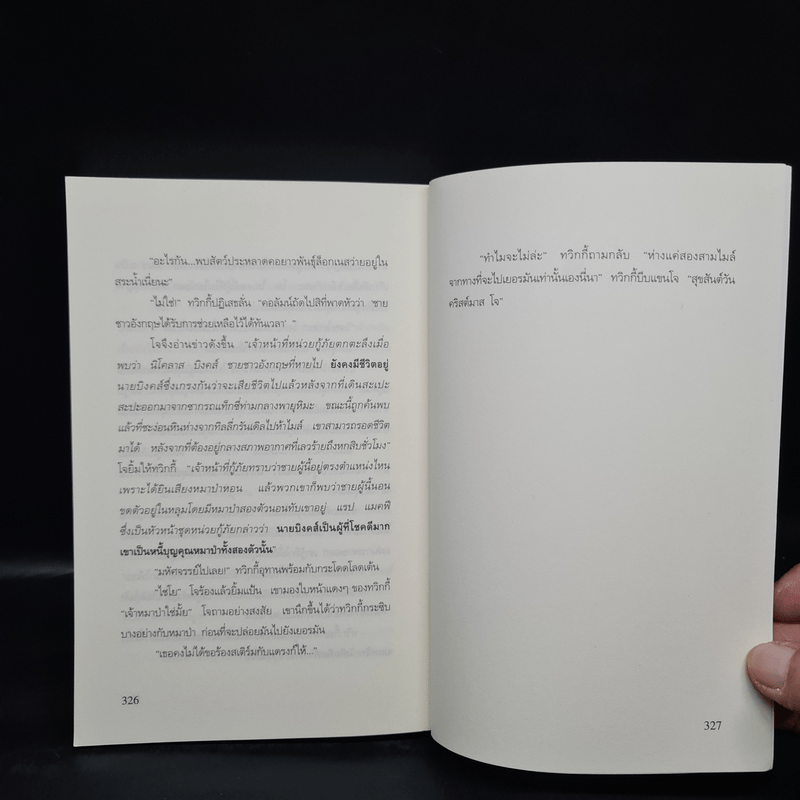 "อะไรกัน...พบสัตว์ประหลาดคอยาวพันธุ์ล็อกเนสว่ายอยู่ใน
สระน้ำเนี่ยนะ"
"ไม่ใช่!" ทวิกกี้ปฏิเสธลั่น "คอลัมน์ถัดไปสิที่พาดหัวว่า 'ชาย
ชาวอังกฤษได้รับการช่วยเหลือไว้ได้ทันเวลา' "
โจจึงอ่านข่าวดังขึ้น "เจ้าหน้าที่หน่วยกู้ภัยตกตะลึงเมื่อ
พบว่า นิโคลาส บิงคส์ ชายชาวอังกฤษที่หายไป ยังคงมีชีวิตอยู่
นายบิงคส์ซึ่งเกรงกันว่าจะเสียชีวิตไปแล้วหลังจากที่เดินสะเปะ
สะปะออกมาจากซากรถแท็กซี่ท่ามกลางพายุหิมะ ขณะนี้ถูกค้นพบ
แล้วที่ชะง่อนหินห่างจากทิลลี่กรันเดิลไปห้าไมล์ เขาสามารถรอดชีวิต
มาได้ หลังจากที่ต้องอยู่กลางสภาพอากาศที่เลวร้ายถึงหกสิบชั่วโมง"
โจยิ้มให้ทวิกกี้ "เจ้าหน้าที่กู้ภัยทราบว่าชายผู้นี้อยู่ตรงตำแหน่งไหน
เพราะได้ยินเสียงหมาป่าหอน แล้วพวกเขาก็พบว่าชายผู้นี้นอน
ขดตัวอยู่ในหลุมโดยมีหมาป่าสองตัวนอนทับเขาอยู่ แรบ แมคฟี
ซึ่งเป็นหัวหน้าชุดหน่วยกู้ภัยกล่าวว่า นายบิงคส์เป็นผู้ที่โชคดีมาก
เขาเป็นหนี้บุญคุณหมาป่าทั้งสองตัวนั้น"
"มหัศจรรย์ไปเลย!" ทวิกกี้อุทานพร้อมกับกระโดดโลดเต้น
"ไชโย" โจร้องแล้วยิ้มแป้น เขามองใบหน้าแดงๆ ของทวิกกี้
"เจ้าหมาป่าใช่มั้ย" โจถามอย่างสงสัย เขานึกขึ้นได้ว่าทวิกกี้กระซิบ
บางอย่างกับหมาป่า ก่อนที่จะปล่อยมันไปยังเยอรมัน
"เธอคงไม่ได้ขอร้องสเติร์มกับแดรงก์ให้..."
326
"ทำไมจะไม่ล่ะ" ทวิกกี้ถามกลับ "ห่างแค่สองสามไมล์
จากทางที่จะไปเยอรมันเท่านั้นเองนี่นา" ทวิกกี้บีบแขนโจ "สุขสันต์วัน
คริสต์มาส โจ"
327